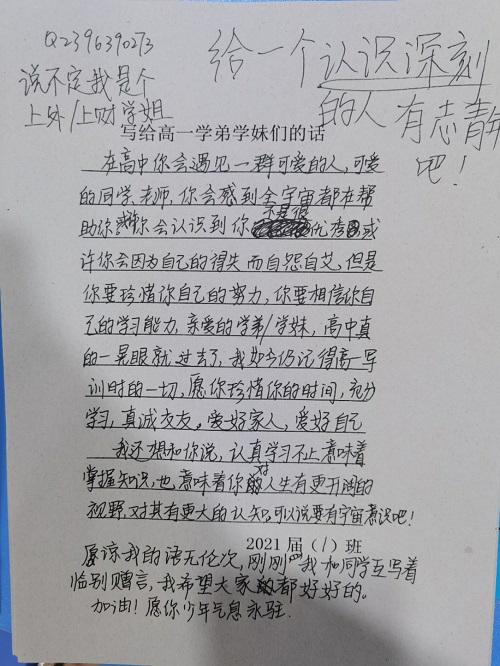 Q2396390273
说不定我是个
上外/上财学姐
给一个认识深刻
的人 有志青年
吧!
写给高一学弟学妹们的话
在高中你会遇见一群可爱的人,可爱
的同学、老师,你会感到全宇宙都在帮
助你,或许你会认识到你不是很优秀,或
许你会因为自己的得失而自怨自艾,但是
你要珍惜你自己的努力,你要相信你自
己的学习能力,亲爱的学弟/学妹,高中真
的一晃眼就过去了,我如今仍记得高一军
训时的一切,愿你珍惜你的时间,充分
学习,真诚交友,爱好家人,爱好自己
我还想和你说,认真学习不止意味着
掌握知识,也意味着你对人生有更开阔的
视野,对其有更大的认知,可以说要有宇宙意识吧!
2021届(1)班
原谅我的语无伦次,刚刚我和同学互写着
临别赠言,我希望大家都好好的。
加油!愿你少年气息永驻.